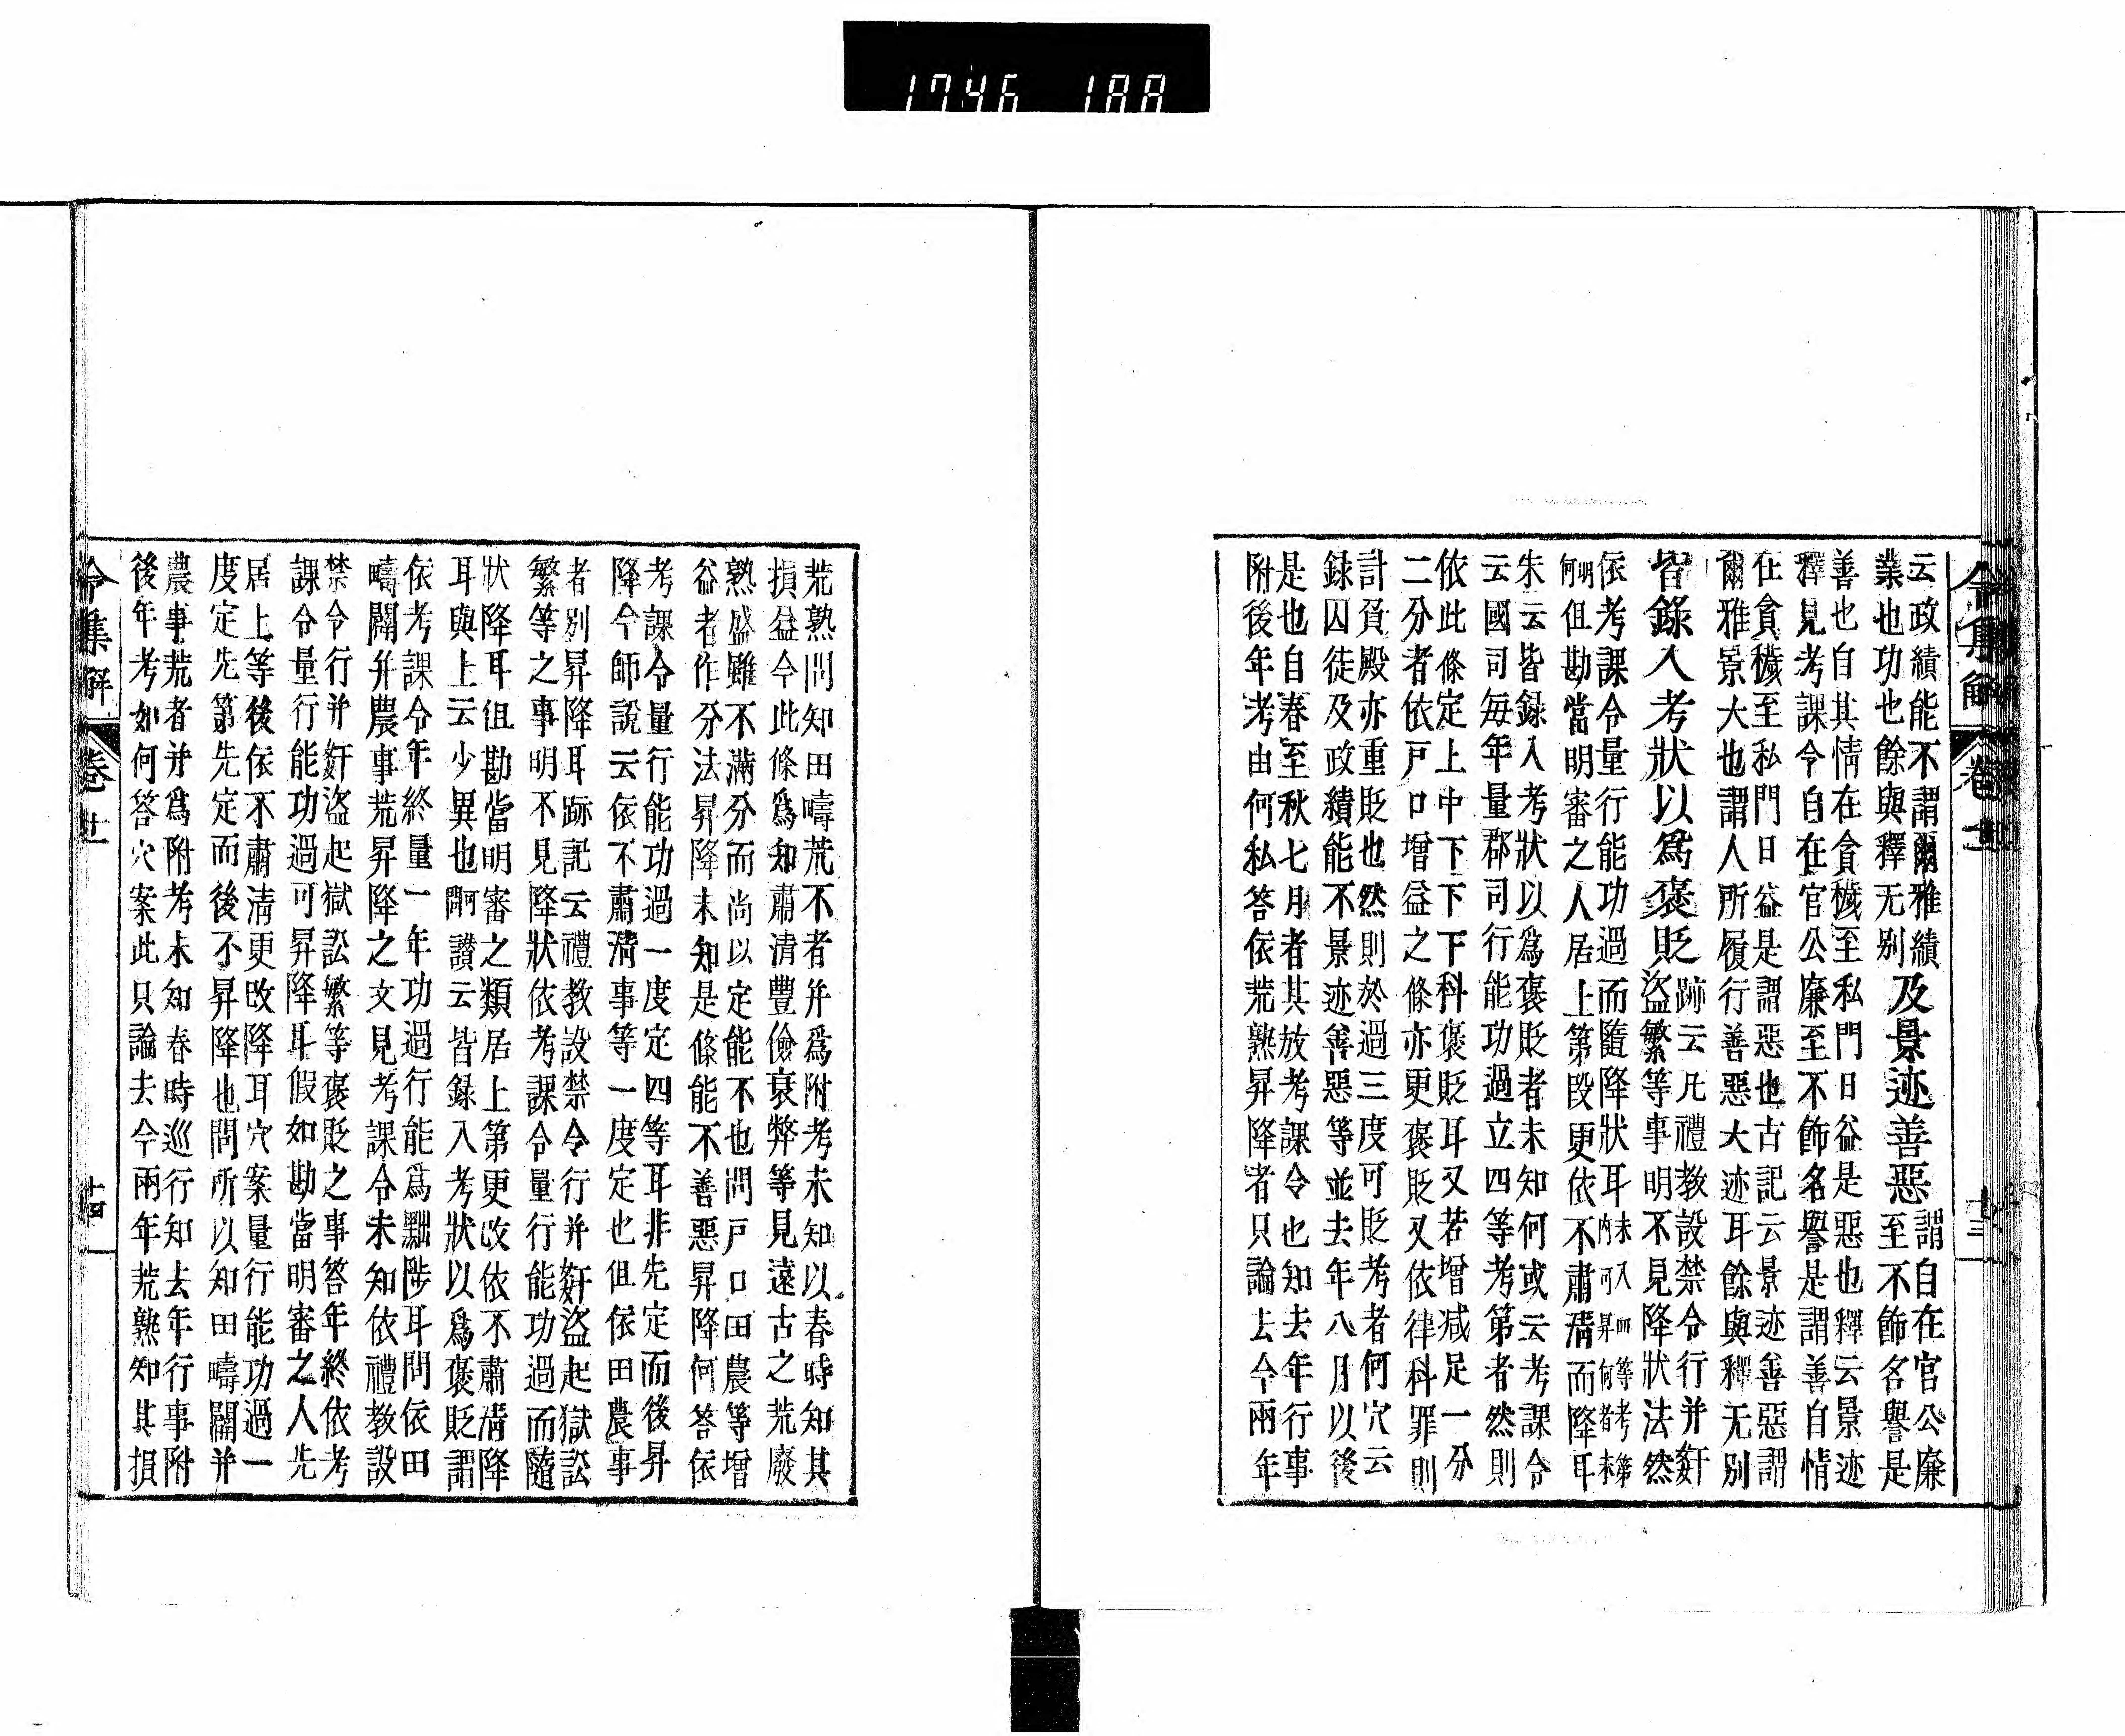 1746 188
令集解 卷廿 十三
云政績能不謂爾雅績
業也功也餘與釋无别
及景迹善惡
謂自在官公廉
至不飾名譽是
善也自其情在貪穢至私門日益是惡也釋云景迹
釋見考課令自在官公廉至不飾名譽是謂善自情
在貪穢至私門日益是謂惡也古記云景迹善惡謂
爾雅景大也謂人所履行善惡大迹耳餘與釋无别
皆錄入考狀以爲褒貶
跡云凡禮教設禁令行并奸
盜繁等事明不見降狀法然
依考課令量行能功過而隨降狀耳未入四等考第
何明但勘當明審之人居上第段更依不肅清而降耳
朱云皆録入考狀以爲褒貶者未知何或云考課令
云國司每年量郡司行能功過立四等考第者然則
依此條定上中下下下科褒貶耳又若增減足一分
二分者依戸口增益之條亦更褒貶又依律科罪則
計負殿亦重貶也然則於過三度可貶考者何穴云
録囚徒及政績能不景迹善惡等並去年八月以後
是也自春至秋七月者其放考課令也知去年行事
附後年考由何私答依荒熟昇降者只論去今兩年
荒熟問知田疇荒不者并爲附考未知以春時知其
損益今此條爲知肅清豐儉衰弊等見遠古之荒廢
熟盛雖不滿分而尚以定能不也問戸口田農等增
益者作分法昇降未知是條能不善惡昇降何答依
考課令量行能功過一度定四等耳非先定而後昇
降今師說云依不肅清事等一度定也但依田農事
者别昇降耳跡記云禮教設禁令行并奸盜起獄訟
繁等之事明不見降狀依考課令量行能功過而隨
狀降耳但勘當明審之類居上第更改依不肅清降
耳與上云少異也讃云皆録入考狀以爲褒貶謂
依考課令年終量一年功過行能爲黜陟耳問依田
疇闢并農事荒昇降之文見考課令未知依禮教設
禁令行并奸盜起獄訟繁等褒貶之事答年終依考
課令量行能功過可昇降耳假如勘當明審之人先
居上等後依不肅清更改降耳穴案量行能功過一
度定先第先定而後不昇降也問所以知田疇闢并
農事荒者并爲附考未知春時巡行知去年行事附
後年考如何答穴案此只論去今兩年荒熟知其損
令集解 卷廿 十四